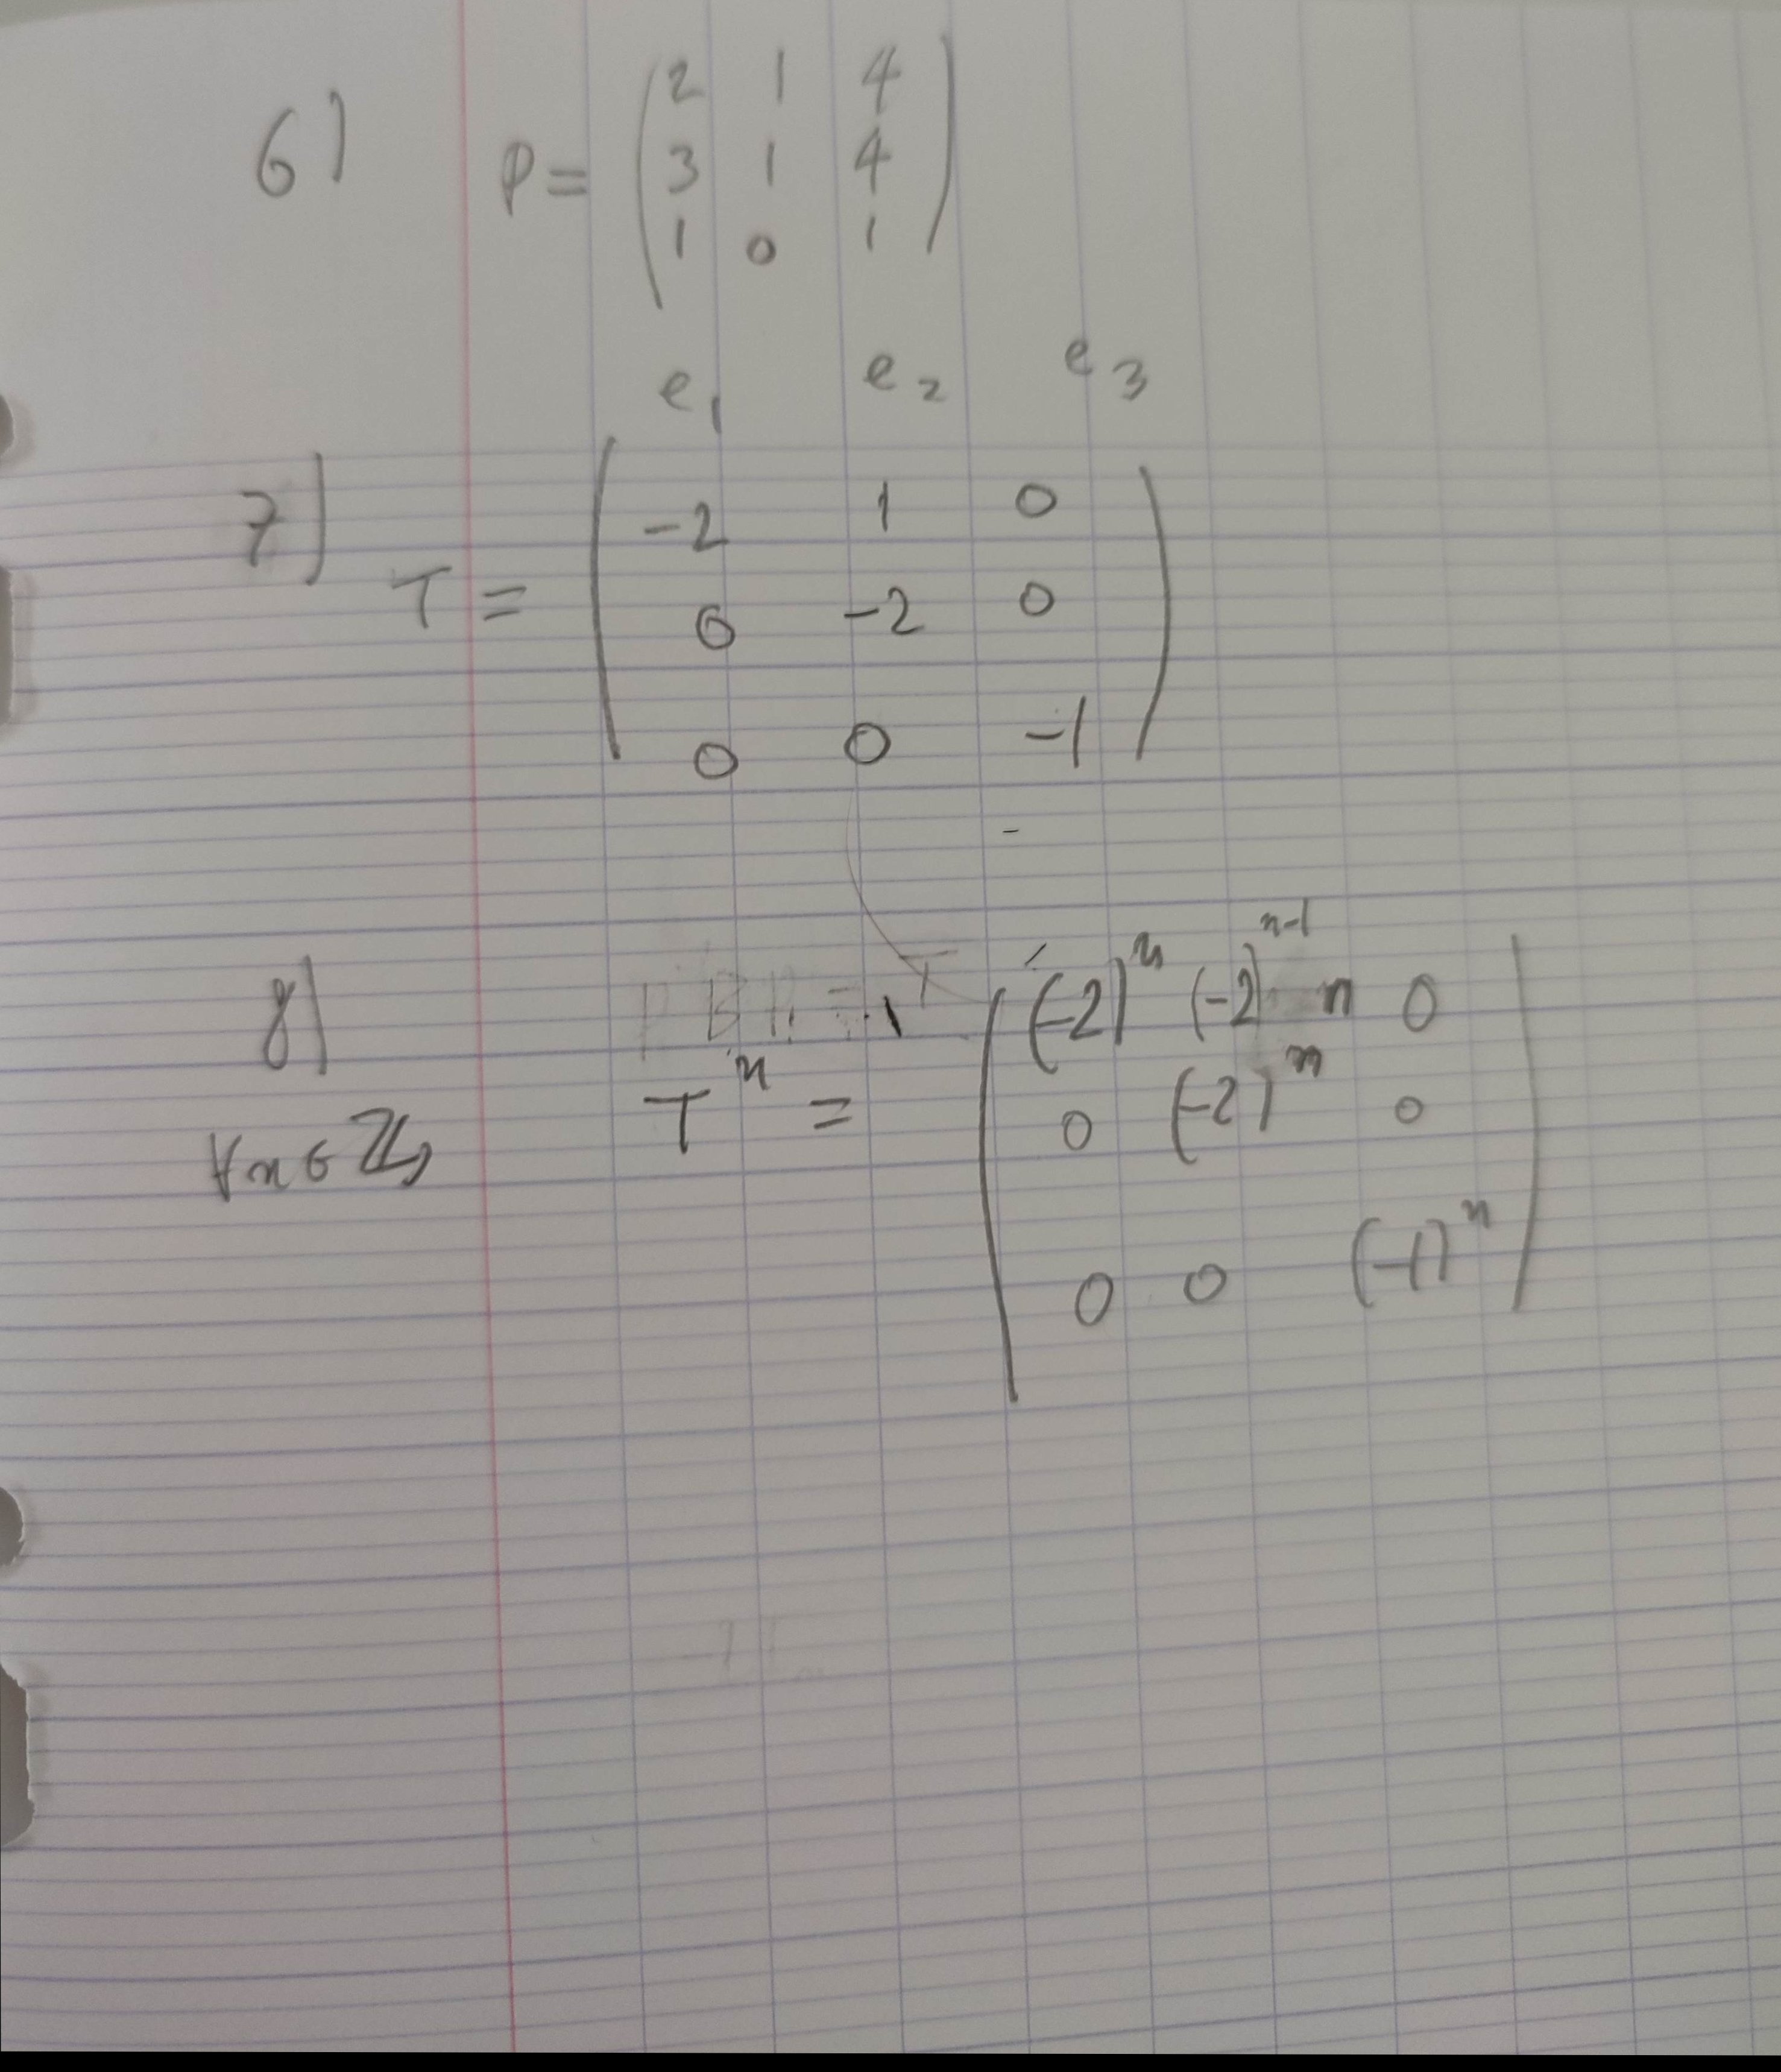 6) P = ( 2 1 4
3 1 4
1 0 1 )
e1 e2 e3
7) T = ( -2 1 0
0 -2 0
0 0 -1 )
8) ∀n∈ℤ, T^n = ( (-2)^n (-2)^{n-1} n 0
0 (-2)^n 0
0 0 (-1)^n )